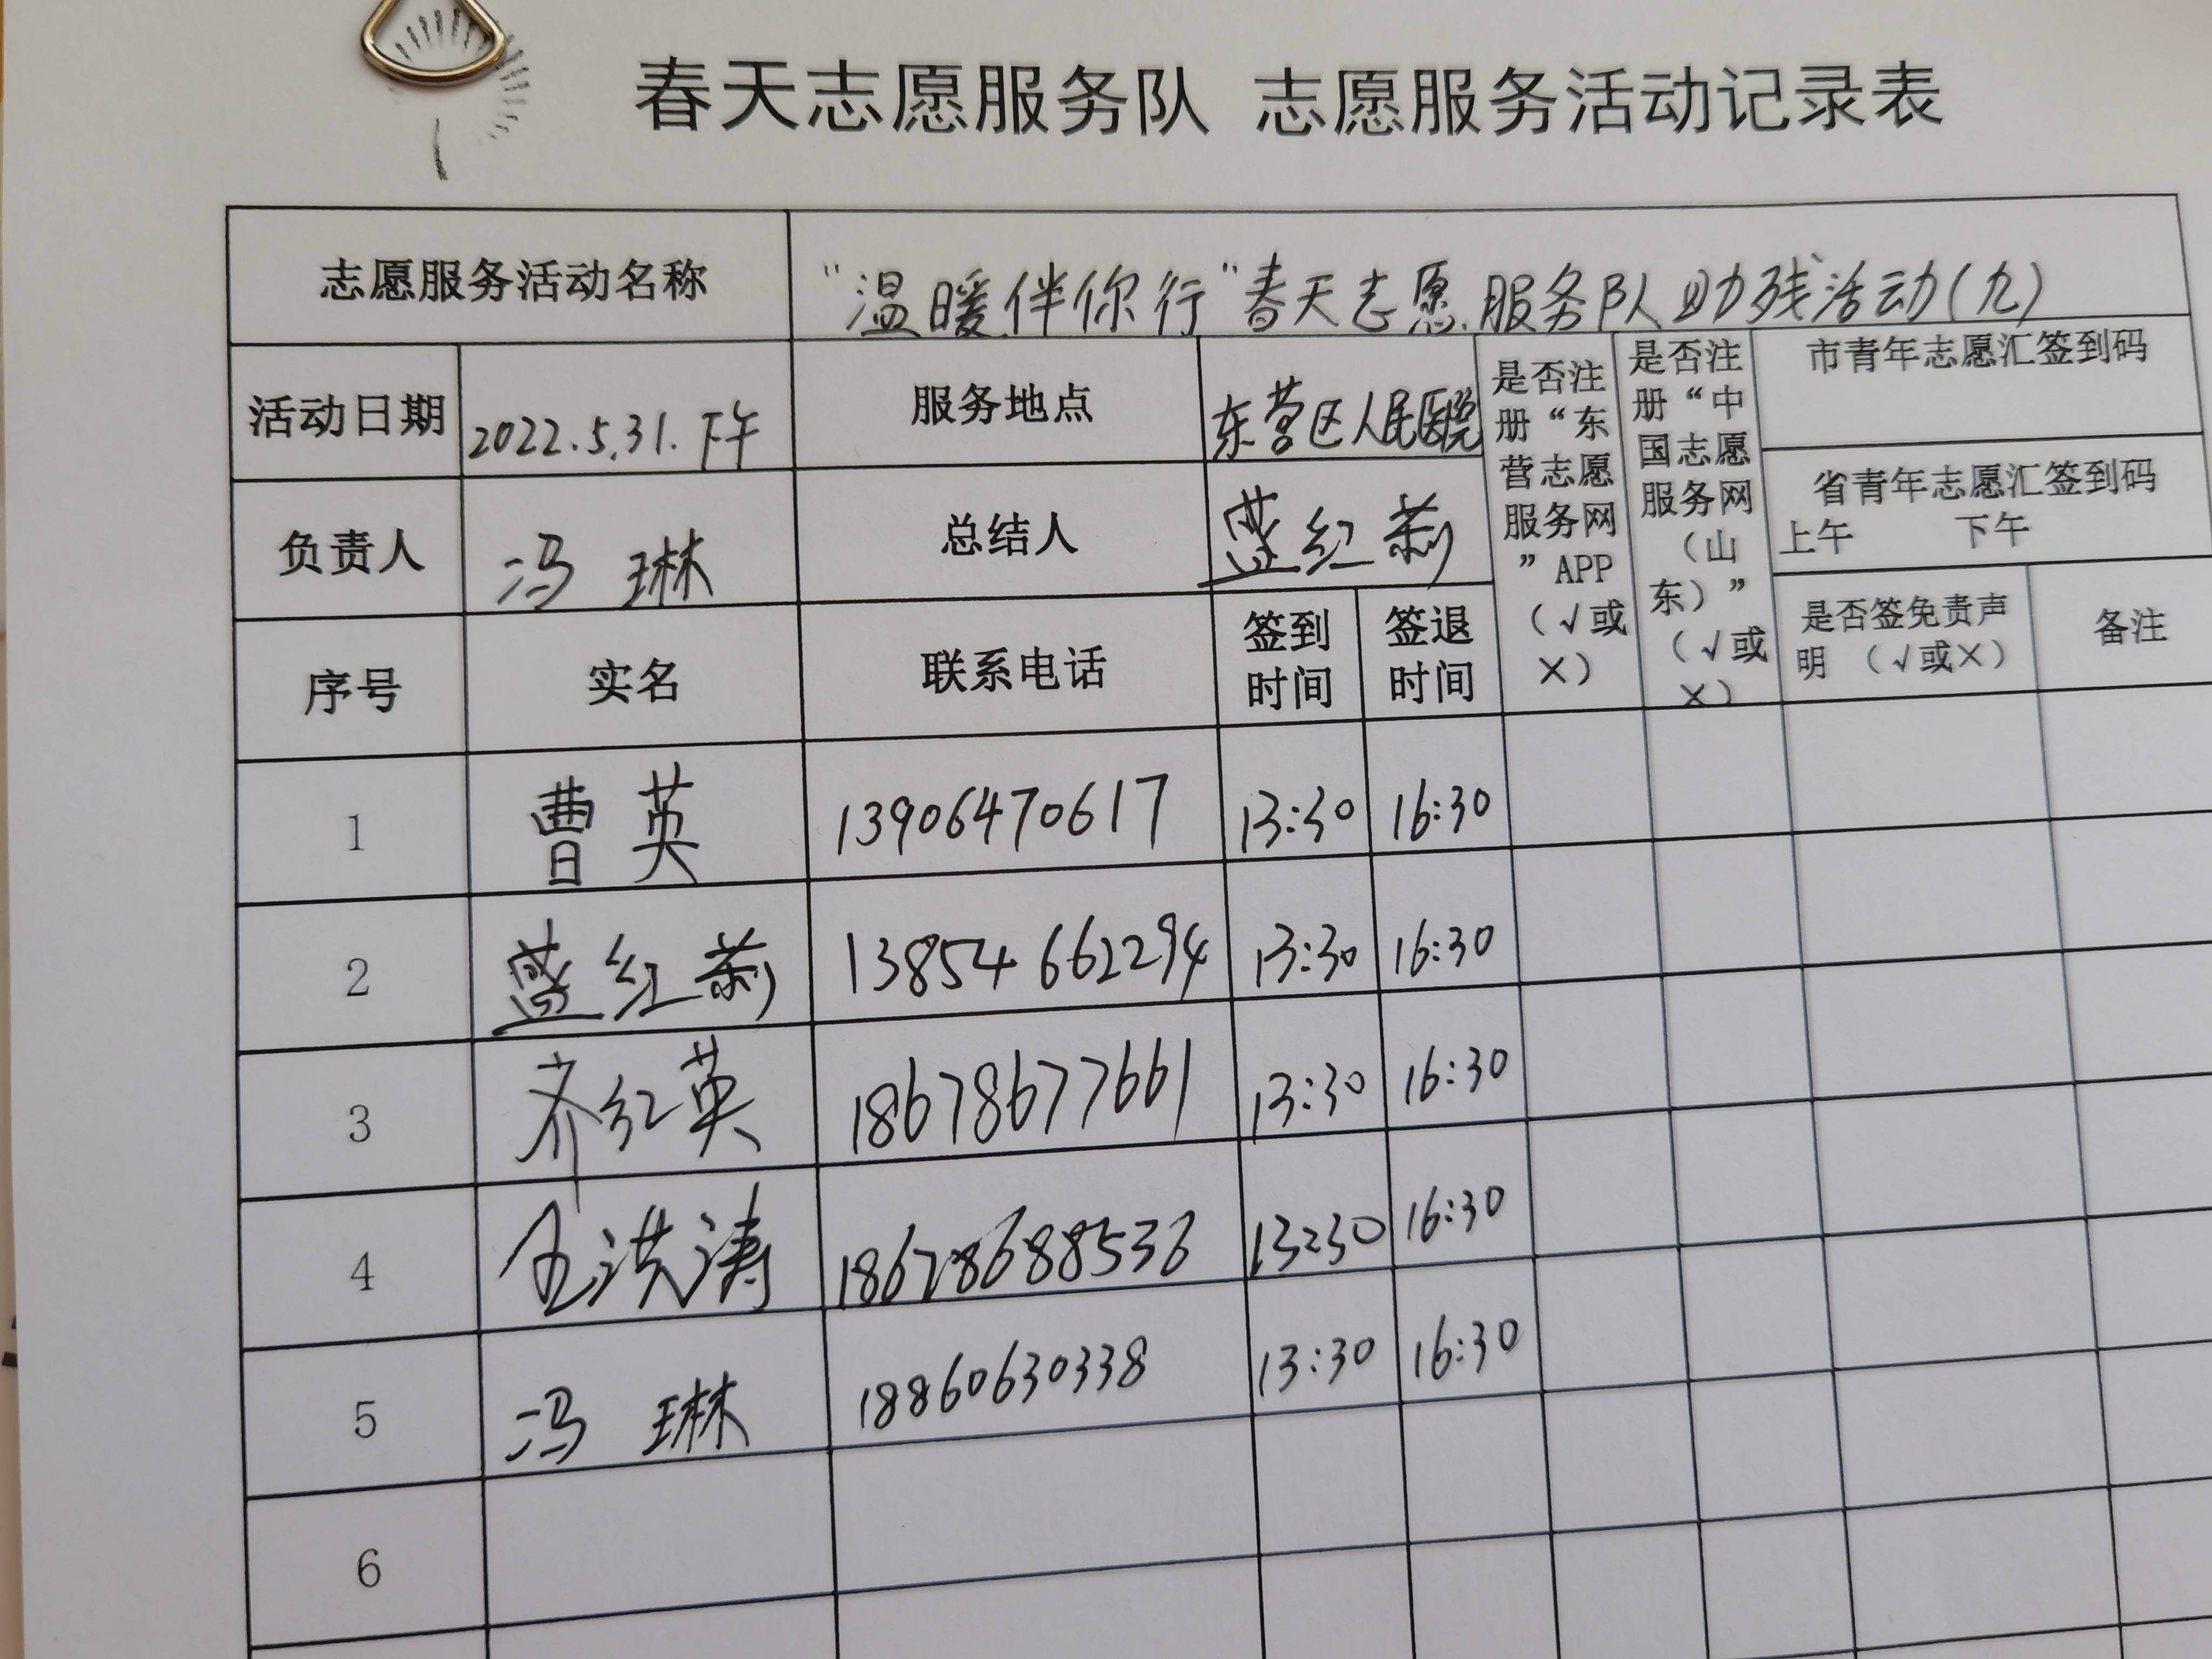 春天志愿服务队 志愿服务活动记录表
志愿服务活动名称 "温暖伴你行"春天志愿服务队助残活动(九)
活动日期 2022.5.31.下午 服务地点 东营区人民医院
负责人 冯琳 总结人 蓝红莉
是否注
册“东
营志愿
服务网
”APP
（√或
×）
是否注
册“中
国志愿
服务网
（山
东）”
（√或
×）
市青年志愿汇签到码
省青年志愿汇签到码
上午 下午
序号 实名 联系电话
签到
时间
签退
时间
是否签免责声
明 （√或×）
备注
1 曹英 13906470617 13:30 16:30
2 蓝红莉 13854662294 13:30 16:30
3 齐红英 18678677661 13:30 16:30
4 洪涛 13:30 16:30
5 冯琳 18860630338 13:30 16:30
6